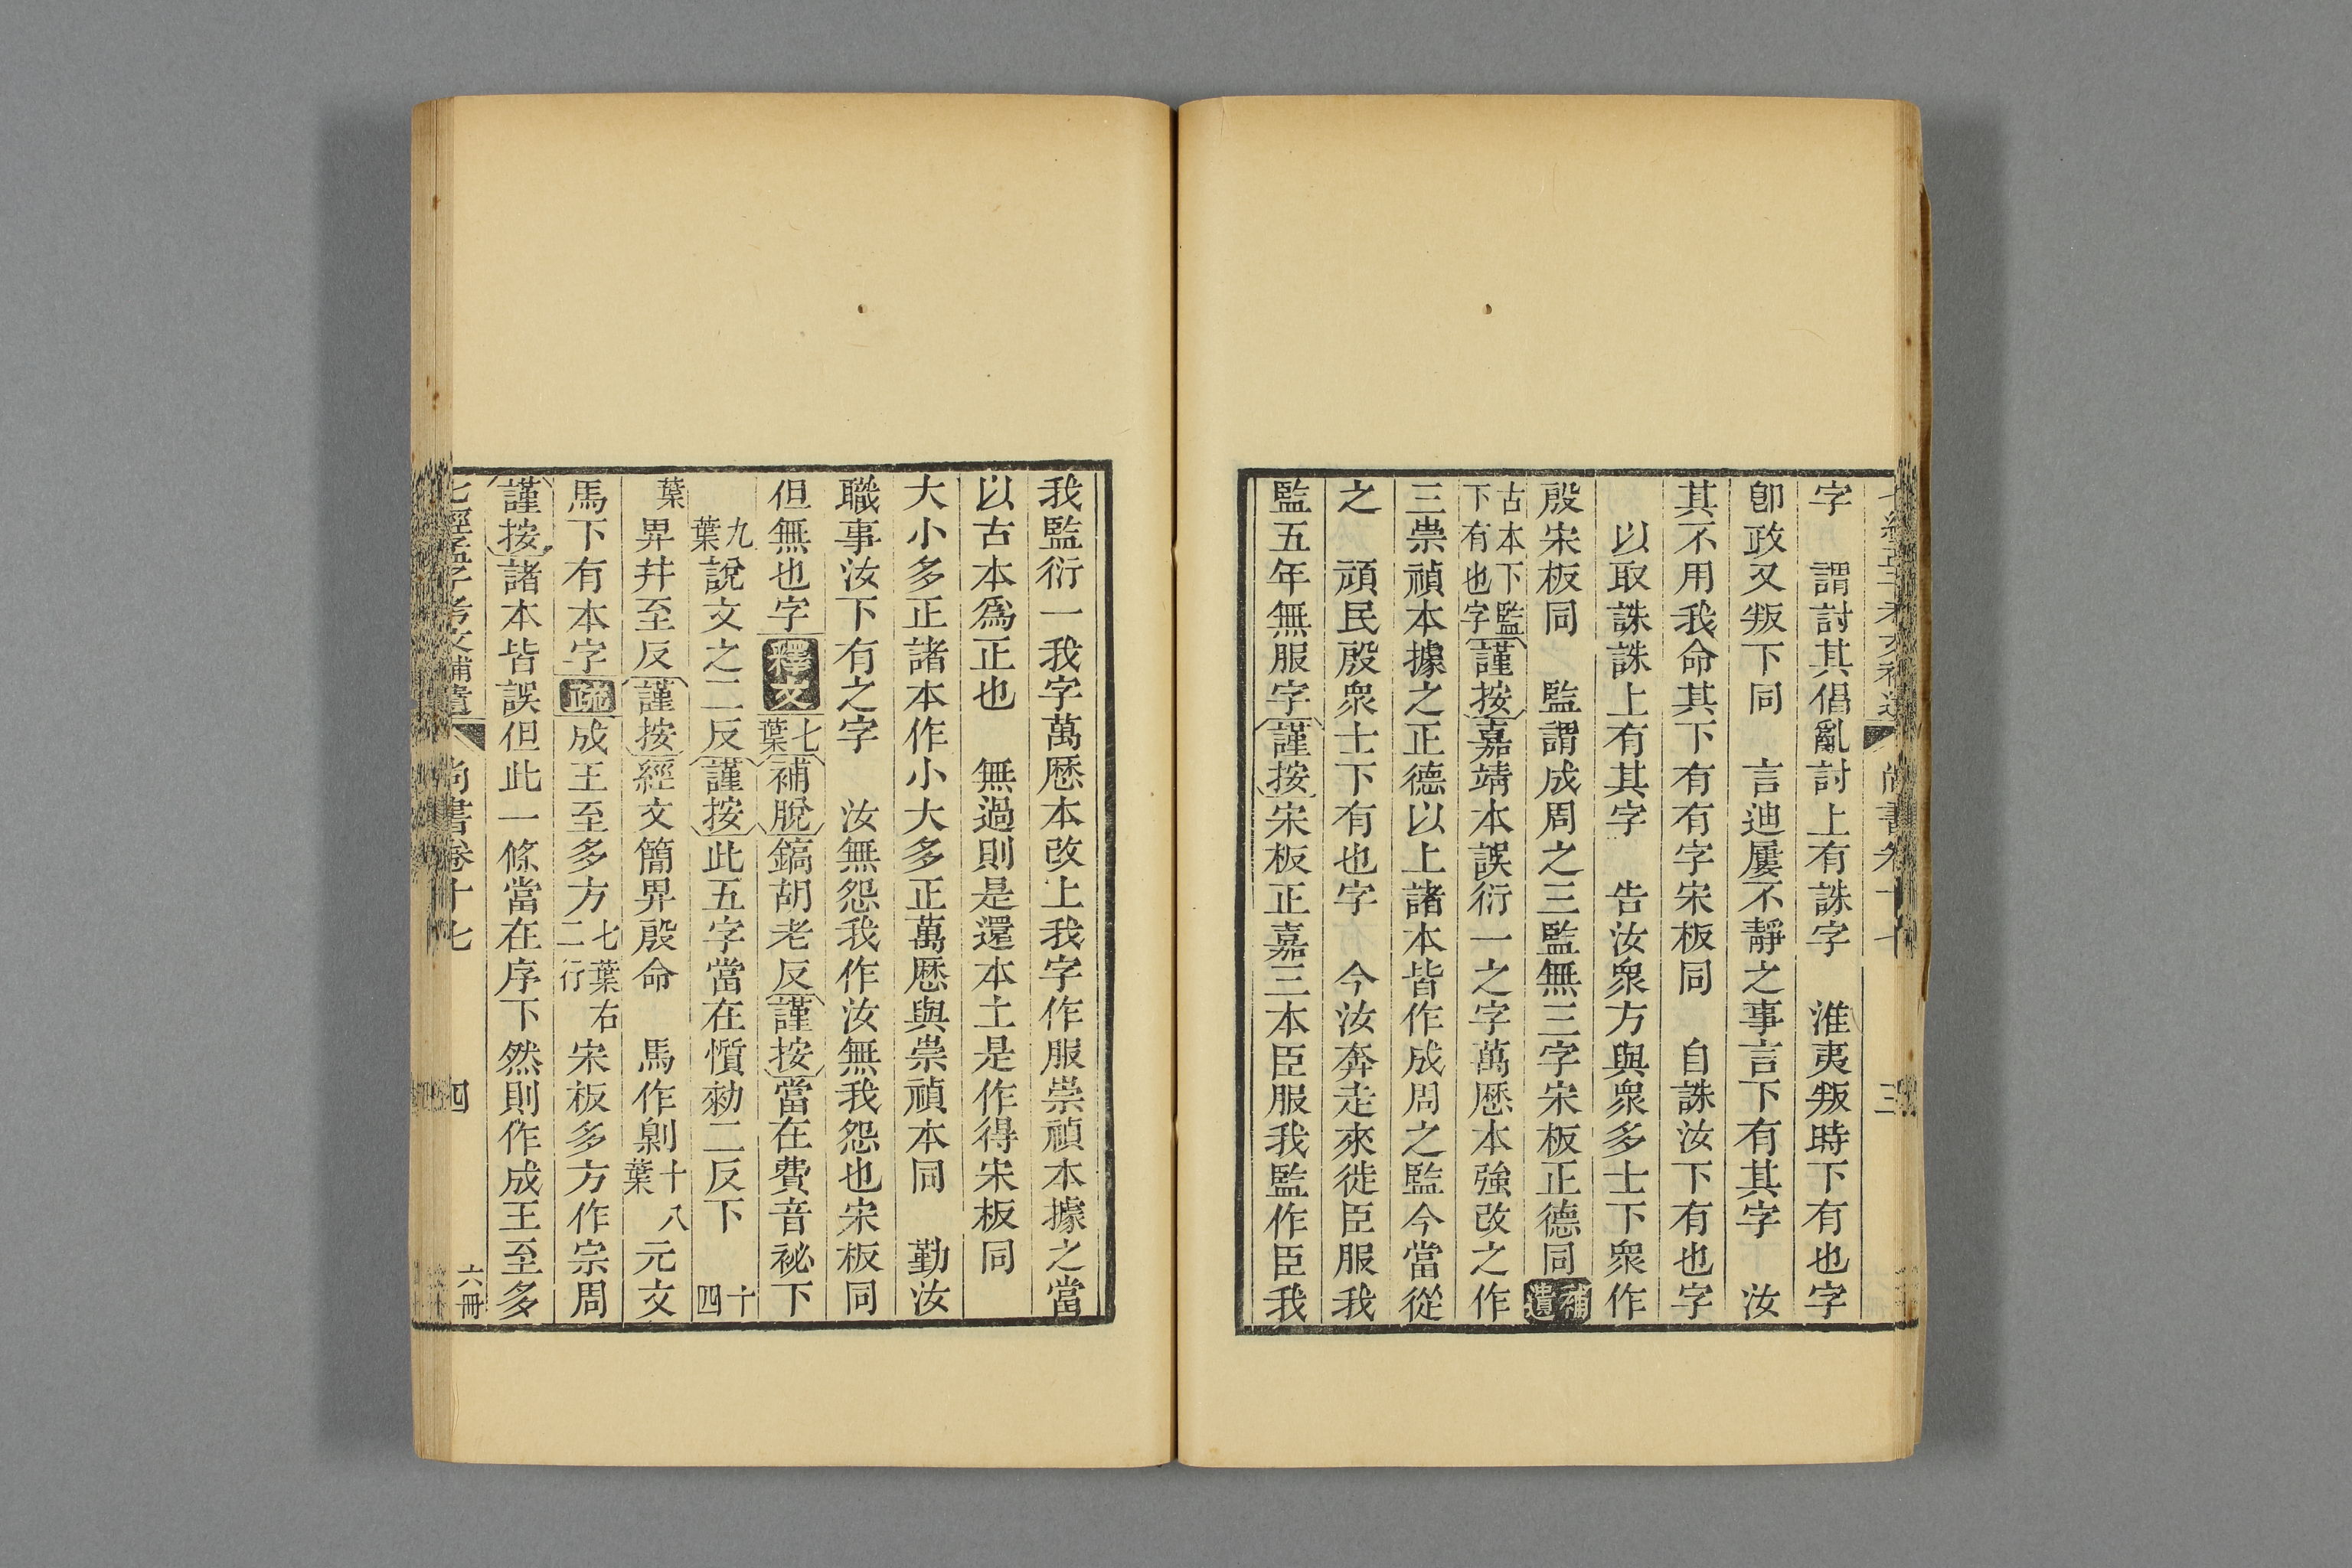 字　謂討其倡亂討上有誅字　淮夷叛時下有也字
卽政又叛下同　言迪屢不靜之事言下有其字　汝
其不用我命其下有有字宋板同　自誅汝下有也字
以取誅誅上有其字　告汝衆方與衆多士下衆作
殷宋板同　監謂成周之三監無三字宋板正德同補遺
古本下監下有也字謹按嘉靖本誤衍一之字萬歷本強改之作
三崇禎本據之正德以上諸本皆作成周之監今當從
之　頑民殷衆士下有也字　今汝奔走來徙臣服我
監五年無服字謹按宋板正嘉三本臣服我監作臣我
我監衍一我字萬歷本改上我字作服崇禎本據之當
以古本爲正也　無過則是還本土是作得宋板同
大小多正諸本作小大多正萬歷與崇禎本同　勤汝
職事汝下有之字　汝無怨我作汝無我怨也宋板同
但無也字釋文七葉補脫鎬胡老反謹按當在費音祕下
九葉說文之二反謹按此五字當在懫勑二反下　十四
葉畀井至反謹按經文簡畀殷命　馬作劓十八葉元文
馬下有本字疏成王至多方七葉右二行宋板多方作宗周
謹按諸本皆誤但此一條當在序下然則作成王至多
七經孟子考文補遺　尚書卷十七　四　六冊